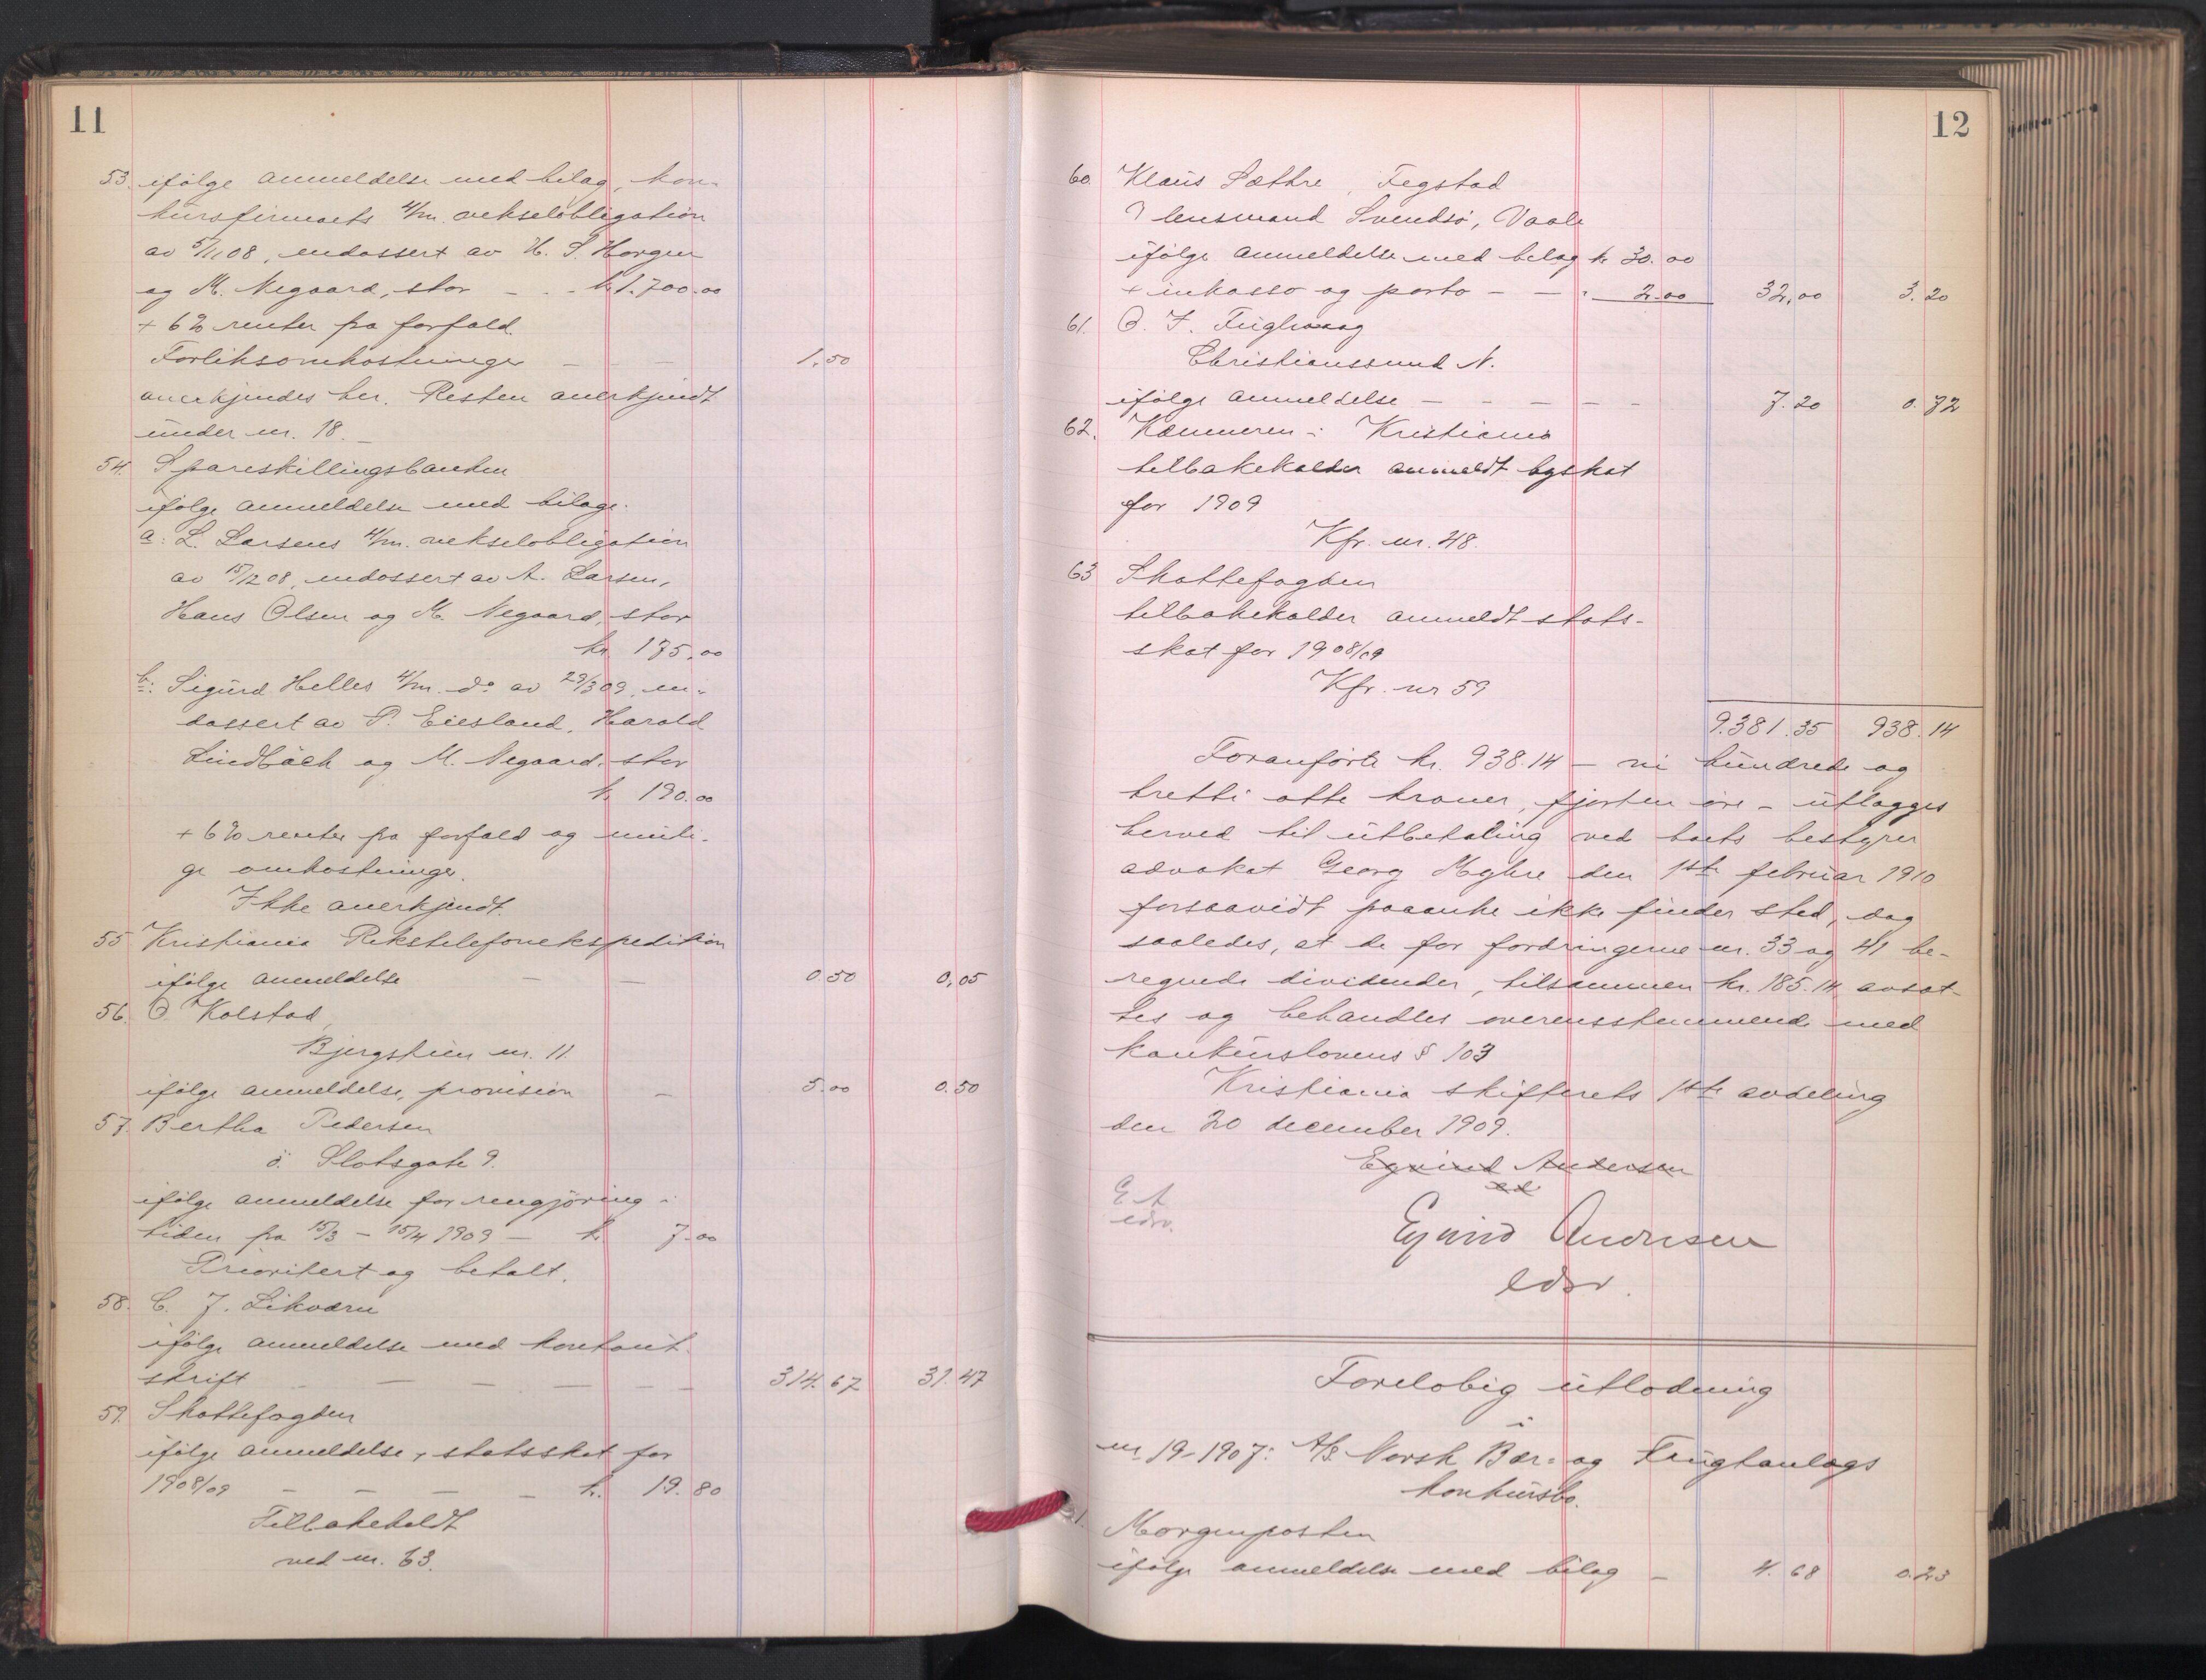 11
53. ifølge anmeldelse med bilag, kon-
kursfirmaets 4/m. vekselobligation
av 5/11 08, endossert av H. S. Horgen
og M. Negaard, stor – . - kr 1.700.00
+ 6% renter fra forfald.
Forliksomkostninger – – 1,50
anerkjendes her. Resten anerkjendt
under nr. 18. –
54. Spareskillingsbanken
ifølge anmeldelse med bilage.
a: L. Larsens 4/m. vekselobligation
av 15/12 08, endossert av A. Larsen,
Hans Olsen og M. Negaard, stor
kr. 175,00
b: Sigurd Helles 4/m. do av 29/3 09, en-
dossert av P. Eiesland, Harald
Lindbäck og M. Negaard, stor
kr 190.00
+ 6% renter fra forfald og muli-
ge omkostninger.
Ikke anerkjendt.
55 Kristiania Rikstelefonekspedition
ifølge anmeldelse – – 0.50 0,05
56. O. Kolstad,
Bjergstien nr. 11.
ifølge anmeldelse, provision – 5.00 0.50
57. Bertha Pedersen
ö. Slotsgate 9.
ifølge anmeldelse for rengjöring i
tiden fra 15/3 – 15/4 1909 – kr. 7.00
Prioritert og betalt.
58. C. J. Likvern
ifølge anmeldelse med kontout-
skrift – – – – – 314.67 31.47
59. Skattefogden
ifølge anmeldelse, statsskat for
1908/09 – – – – kr. 19.80
Tilbakekaldt
ved nr. 63.
12
60. Klaus Sæthre, Fegstad
lensmand Svendsö, Vaale
ifølge anmeldelse med bilag kr 30.00
+ inkasso og porto – – . 2.00 32,00 3.20
61. O. J. Fuglevaag
Christianssund N.
ifølge anmeldelse – – – – – 7.20 0.72
62. Kæmneren i Kristiania
tilbakekalder anmeldt byskat
for 1909
Kfr. nr. 48.
63 Skattefogden
tilbakekalder anmeldt stats-
skat for 1908/09
Kfr. nr 59
9.381.35 938.14
Foranförte kr. 938.14 – ni hundrede og
tretti otte kroner, fjorten öre – utlægges
herved til utbetaling ved boets bestyrer
advokat Georg Myhre den 1ste februar 1910
forsaavidt paaanke ikke finder sted, dog
saaledes, at de for fordringerne nr. 33 og 41 be-
regnede dividender, tilsammen kr. 185.14, avsæt-
tes og behandles overensstemmende med
konkurslovens § 103
Kristiania skifterets 1ste avdeling
den 20 december 1909.
Eyvind Andersen
ed
E A
edsv.
Eyvind Andersen
edsv.
Foreløbig utlodning
i
nr 19-1907: A/S. Norsk Bær- og Frugtanlægs
konkursbo.
1. Morgenposten
ifølge anmeldelse med bilag – 4.68 0.23